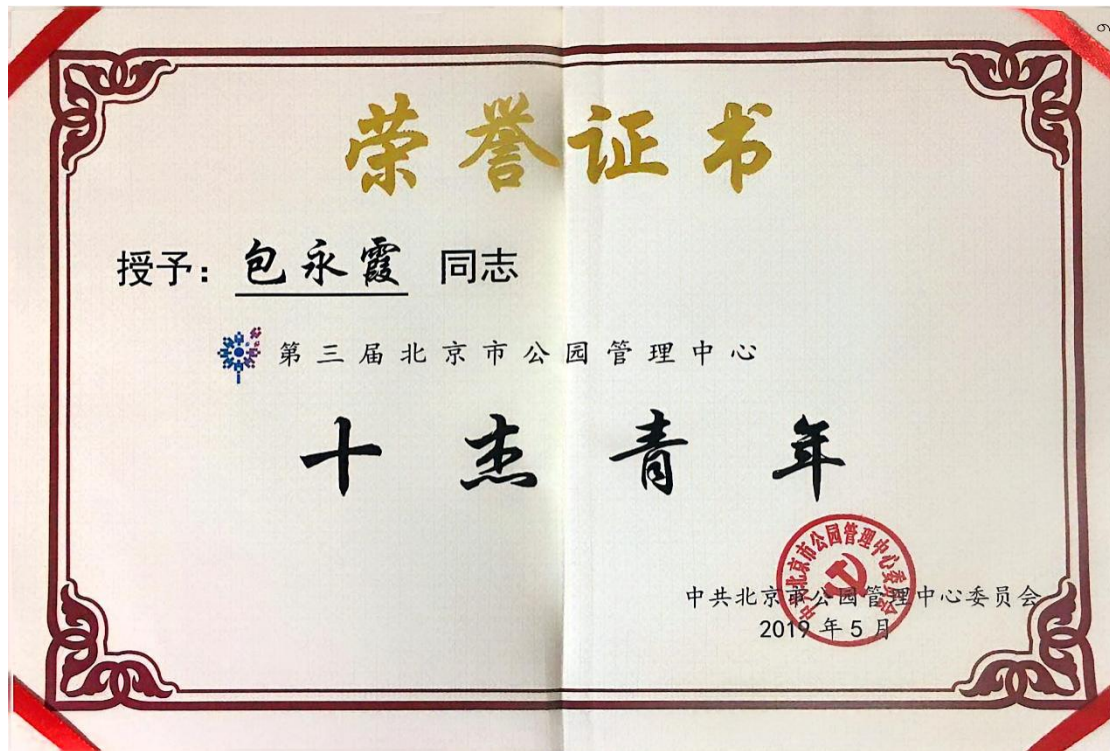 荣誉证书
授予：包永霞 同志
第三届北京市公园管理中心
十杰青年
中共北京市公园管理中心委员会
中共北京市公园管理中心委员会
2019年5月